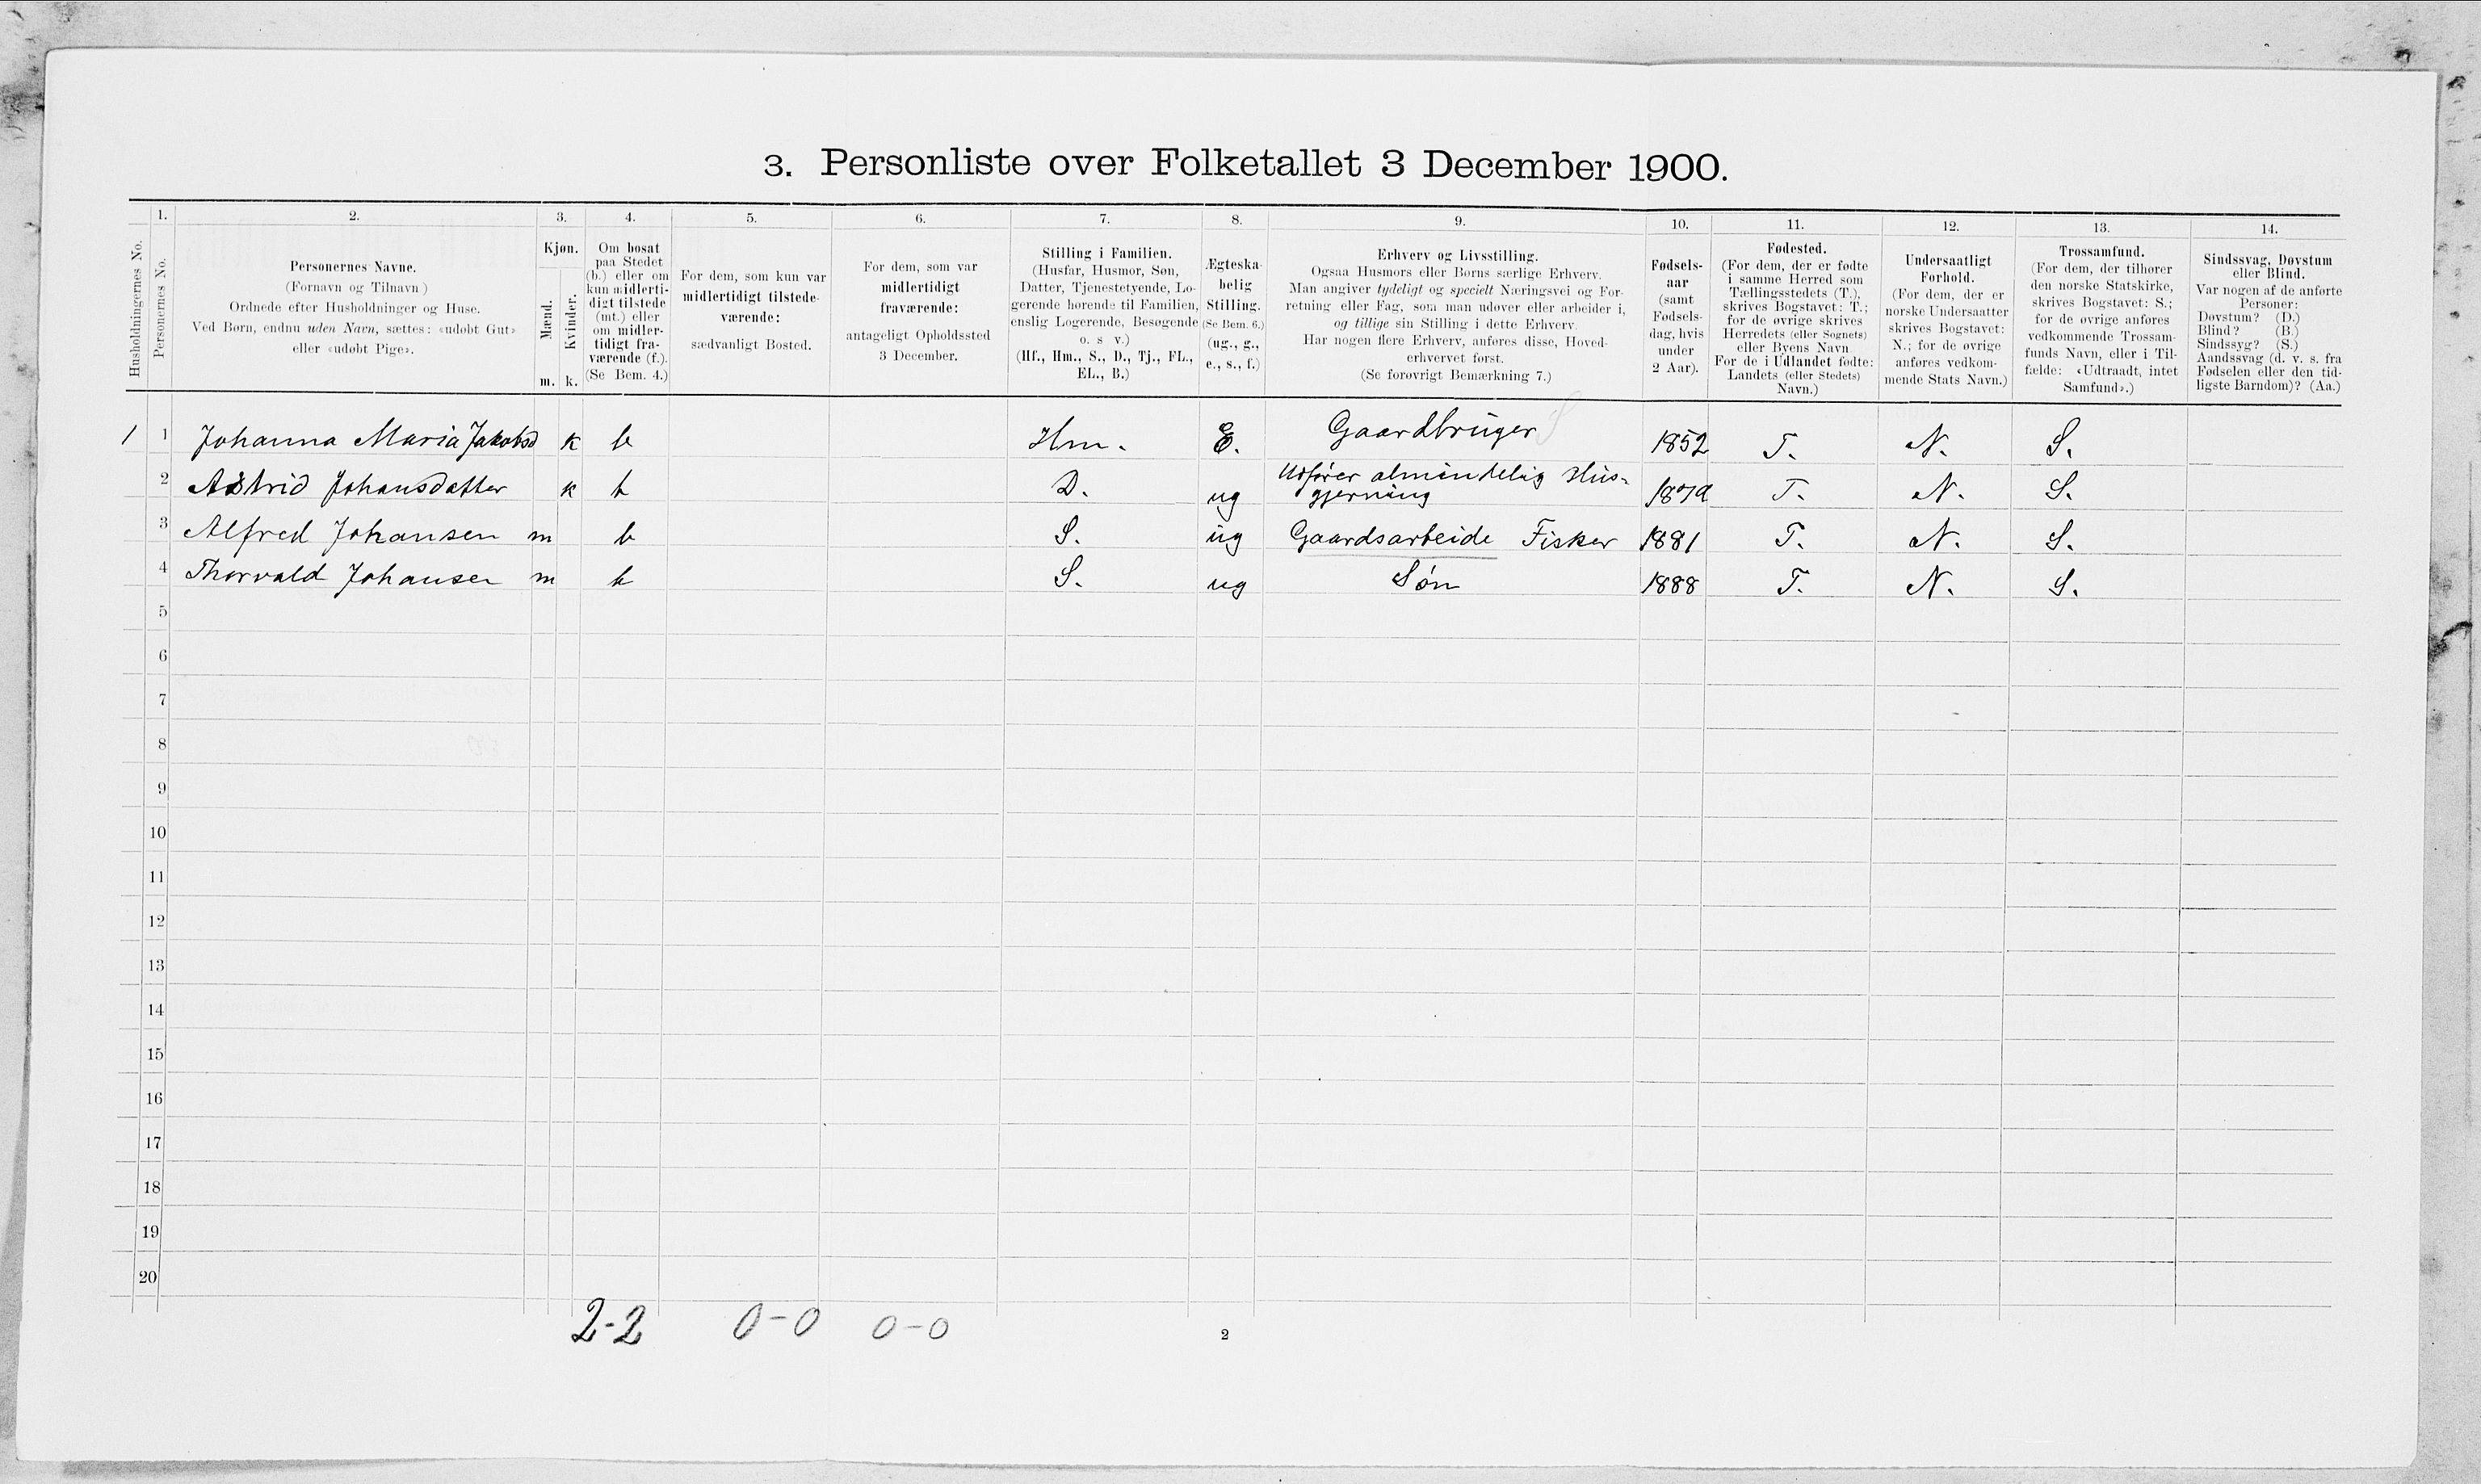 3. Personliste over Folketallet 3 December 1900.
1. 2. 3. 4. 5. 6. 7. 8. 9. 10. 11. 12. 13. 14.
Husholdningernes No.
Personernes No.
Personernes Navne.
(Fornavn og Tilnavn)
Ordnede efter Husholdninger og Huse.
Ved Børn, endnu uden Navn, sættes: «udøbt Gut»
eller «udøbt Pige».
Kjøn.
Mænd.
Kvinder.
m. k.
Om bosat
paa Stedet
(b.) eller om
kun midlerti-
digt tilstede
(mt.) eller
om midler-
tidigt fra-
værende (f.).
(Se Bem. 4.)
For dem, som kun var
midlertidigt tilstede-
værende:
sædvanligt Bosted.
For dem, som var
midlertidigt
fraværende:
antageligt Opholdssted
3 December.
Stilling i Familien.
(Husfar, Husmor, Søn,
Datter, Tjenestetyende, Lo-
gerende hørende til Familien,
enslig Logerende, Besøgende
o. s v.)
(Hf., Hm., S., D., Tj., FL.,
EL., B.)
Ægteska-
belig
Stilling.
(Se Bem. 6.)
(ug., g.,
e., s., f.)
Erhverv og Livsstilling.
Ogsaa Husmors eller Børns særlige Erhverv.
Man angiver tydeligt og specielt Næringsvei og For-
retning eller Fag, som man udøver eller arbeider i,
og tillige sin Stilling i dette Erhverv.
Har nogen flere Erhverv, anføres disse, Hoved-
erhvervet først.
(Se forøvrigt Bemærkning 7.)
Fødsels-
aar
(samt
Fødsels-
dag, hvis
under
2 Aar).
Fødested.
(For dem, der er fødte
i samme Herred som
Tællingsstedets (T.),
skrives Bogstavet: T.;
for de øvrige skrives
Herredets (eller Sognets)
eller Byens Navn
For de i Udlandet fødte:
Landets (eller Stedets)
Navn.)
Undersaatligt
Forhold.
(For dem, der er
norske Undersaatter
skrives Bogstavet:
N.; for de øvrige
anføres vedkom-
mende Stats Navn.)
Trossamfund.
(For dem, der tilhører
den norske Statskirke,
skrives Bogstavet: S.;
for de øvrige anføres
vedkommende Trossam-
funds Navn, eller i Til-
fælde: «Udtraadt, intet
Samfund».)
Sindssvag, Døvstum
eller Blind.
Var nogen af de anførte
Personer:
Døvstum? (D.)
Blind? (B.)
Sindssyg? (S.)
Aandssvag (d. v. s. fra
Fødselen eller den tid-
ligste Barndom)? (Aa.)
1 1 Johanna Maria Jakobsd k b Hm. E. Gaardbruger S 1852 T. N. S.
2 Astrid Johansdatter k b D. ug Udfører almindelig Hus-
gjerning 1879 T. N. S.
3 Alfred Johansen m b S. ug Gaardsarbeide Fisker 1881 T. N. S.
4 Thorvald Johansen m b S. ug Søn 1888 T. N. S.
5
6
7
8
9
10
11
12
13
14
15
16
17
18
19
20
2-2 0-0 0-0
2